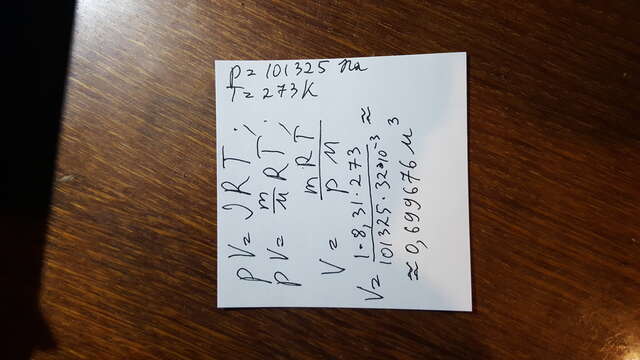 pV = νRT;
pV = m/μ RT;
V = mRT/pμ
V = 1·8,31·273/101325·32·10⁻³ ≈
≈ 0,699676 м³
p = 101325 Па
T = 273 К